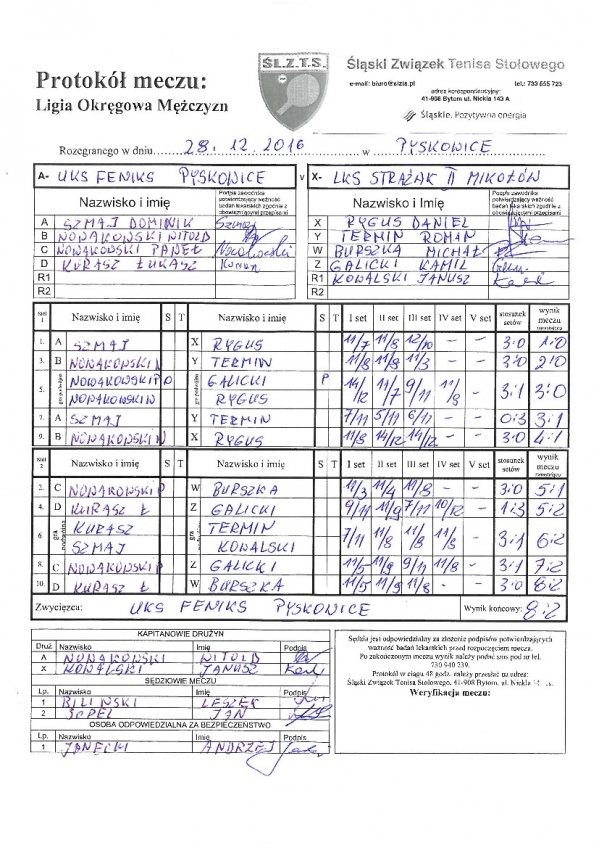 Protokół meczu:
Ligia Okręgowa Mężczyzn
ŚL.Z.T.S.
Śląski Związek Tenisa Stołowego
e-mail: biuro@slzts.pl tel.: 733 555 723
adres korespondencyjny:
41-908 Bytom ul. Nickla 143 A
Śląskie. Pozytywna energia
Rozegranego w dniu 28. 12. 2016 w PYSKOWICE
A- UKS FENIKS PYSKOWICE v X- LKS STRAŻAK II MIKOŁÓW
Nazwisko i Imię Podpis zawodnika potwierdzający ważność badań lekarskich zgodnie z obowiązującymi przepisami Nazwisko i Imię Podpis zawodnika potwierdzający ważność badań lekarskich zgodnie z obowiązującymi przepisami
A SZMAJ DOMINIK X RYGUS DANIEL
B NOWAKOWSKI WITOLD Y TERMIN ROMAN
C NOWAKOWSKI PAWEŁ W BURSZKA MICHAŁ
D KURASZ ŁUKASZ Z GALICKI KAMIL
R1 R1 KOWALSKI JANUSZ
R2 R2
Stół 1 Nazwisko i imię S T Nazwisko i imię S T I set II set III set IV set V set stosunek setów wynik meczu narastająco
1. A SZMAJ X RYGUS 11/7 11/8 12/10 - - 3:0 1:0
3. B NOWAKOWSKI W Y TERMIN 11/8 11/8 11/3 - - 3:0 2:0
5. gra podwójna NOWAKOWSKI P D gra podwójna GALICKI P 14/12 11/7 9/11 11/8 - 3:1 3:0
NOWAKOWSKI W RYGUS
7. A SZMAJ Y TERMIN 7/11 5/11 6/11 - - 0:3 3:1
9. B NOWAKOWSKI W X RYGUS 11/8 14/12 14/12 - - 3:0 4:1
Stół 2 Nazwisko i imię S T Nazwisko i imię S T I set II set III set IV set V set stosunek setów wynik meczu narastająco
2. C NOWAKOWSKI P W BURSZKA 11/3 11/4 11/8 - - 3:0 5:1
4. D KURASZ Ł Z GALICKI 9/11 11/9 7/11 10/12 - 1:3 5:2
6. gra podwójna KURASZ gra podwójna TERMIN 7/11 11/8 11/8 11/8 - 3:1 6:2
SZMAJ KOWALSKI
8. C NOWAKOWSKI P Z GALICKI 11/5 11/9 9/11 11/8 - 3:1 7:2
10. D KURASZ Ł W BURSZKA 11/5 11/9 11/8 - - 3:0 8:2
Zwycięzca: UKS FENIKS PYSKOWICE Wynik końcowy: 8:2
KAPITANOWIE DRUŻYN
Druż Nazwisko Imię Podpis
A NOWAKOWSKI WITOLD
X KOWALSKI JANUSZ
SĘDZIOWIE MECZU
Lp. Nazwisko Imię Podpis
1 BILIŃSKI LESZEK
2 SOPEL JAN
OSOBA ODPOWIEDZIALNA ZA BEZPIECZEŃSTWO
Lp. Nazwisko Imię Podpis
1 JANECKI ANDRZEJ
Sędzia jest odpowiedzialny za złożenie podpisów potwierdzających
ważność badań lekarskich przed rozpoczęciem meczu.
Po zakończonym meczu wynik należy podać sms-pod nr tel.
730 940 239.
Protokół w ciągu 48 godz. należy przesłać na adres:
Śląski Związek Tenisa Stołowego. 41-908 Bytom, ul. Nickla
Weryfikacja meczu: